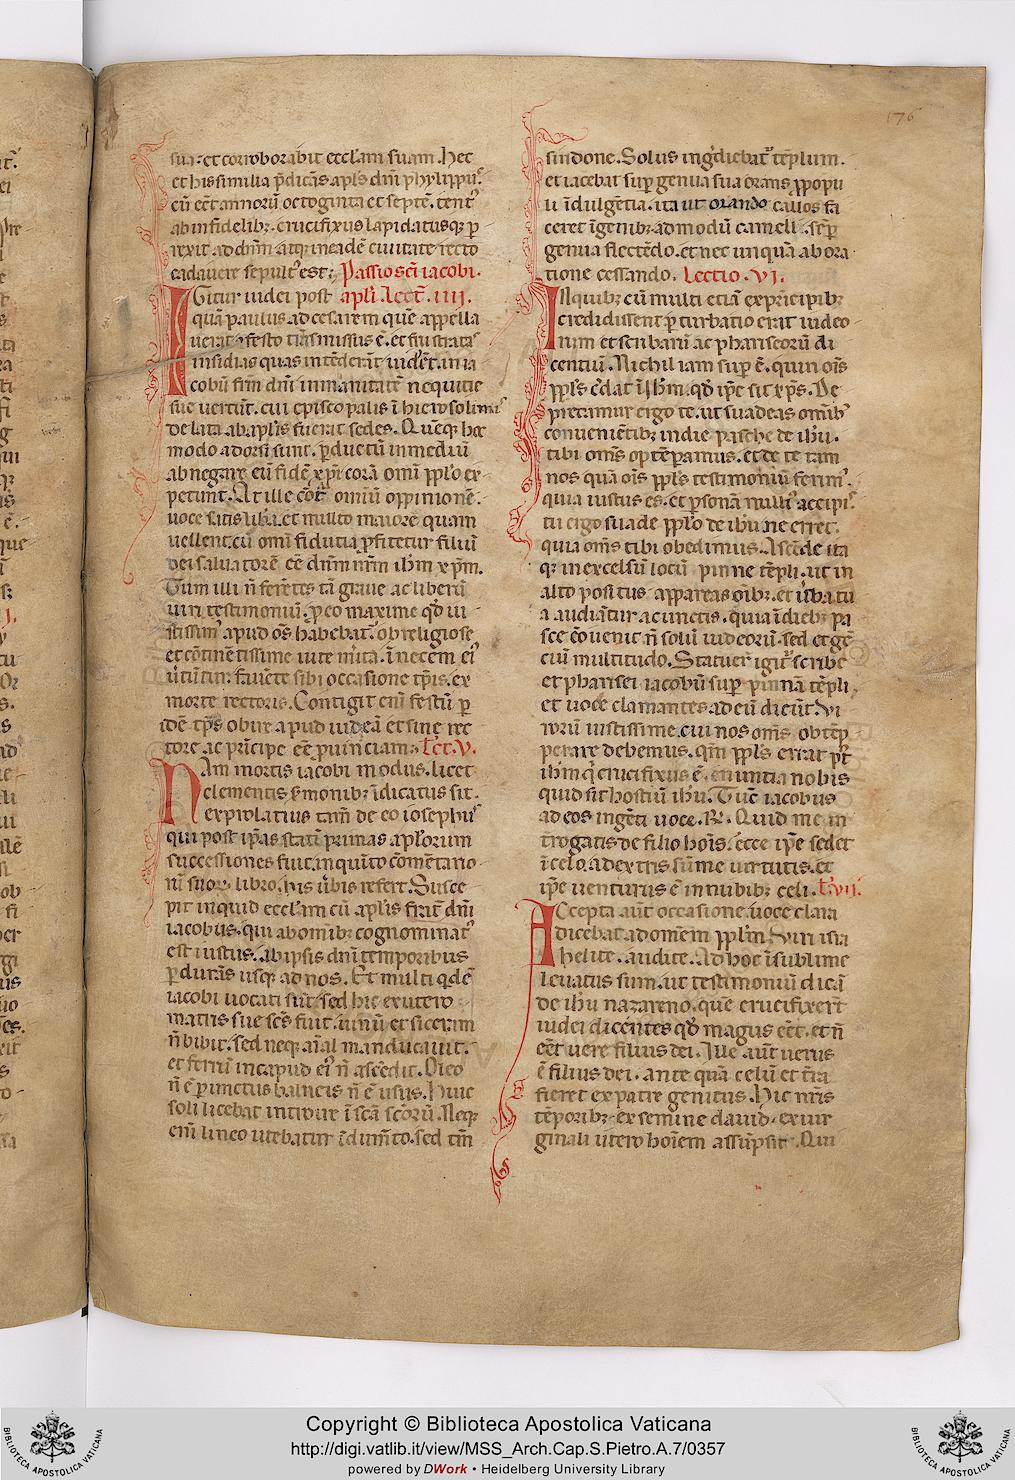 176
sua. et corroborabit eccl'am suam. Hec
et his similia p̄dicās apl's dn̄i phylippus.
cū eēt annorū octoginta et septē. tent'
ab infidelib; crucifixus lapidatusq; p
rexit ad dn̄m atq; in eadē ciuitate recto
cadauere sepult' est; Passio sc̄i iacobi.
IGitur iudei post apl'i Lect̄. IIII.
quā paulus ad cesarem quē appella
uerat a festo trāsmissus ē. et frustratas
insidias quas intēderāt uidēt. in ia
cobū frm̄ dn̄i inmanitatē nequitie
sue uertūt. cui episcopalis ī hierosolimis
delata ab apl'is fuerat sedes. Queq; hoc
modo adorsi sunt. p̄ductū in mediū
abnegare eū fidē xp̄i corā omi ppl'o ex
petunt. At ille cōt omiū oppinionē.
uoce satis lib'a. et multo maiore quam
uellent. cū omi fidutia p̄fitetur filiū
dei saluatorē eē dn̄m nr̄m ih'm xp̄m.
Tum illi n̄ ferētes tā graue ac liberū
uiri testimoniū. p̄ eo maxime qd̄ iu
stissim' apud oēs habebat̄. ob religiose
et cōtinētissime uite m'ita. ī necem ei'
u'tūtur. fauēte sibi occasione tp̄is. ex
morte rectoris. Contigit enī festū p
idē tp̄s obire apud iudeā et sine rec
tore ac prīcipe eē puinciam; Lec̄t. V.
NAm mortis iacobi modus. licet
clementis s'monib; īdicatus sit.
explolatius tam̄ de eo iosephus
qui post ip̄as statī primas apl'orum
successiones fuit. in quīto cōmētario
nī suor. libro. his u'bis refert. Susce
pit inquid eccl'am cū apl'is frāt̄ dn̄i
iacobus. qui ab omib; cognominat'
est iustus. ab ipsis dn̄i temporibus
p durās usq; ad nos. Et multi q̄dē
iacobi uocati sūt. sed hic ex utero
matris sue scs̄ fuit. uinū et siceram
n̄ bibit. sed neq; aīal manducauit.
et ferrū in capud ei' n̄ ascēdit. Oleo
n̄ ē punctus balneis n̄ ē usus. Huic
soli licebat introire ī scā scōrū. Neq;
enī lineo utebatur īdumto. sed tm̄
sindone. Solus ingr̄diebat̄ tēplum.
et iacebat sup genua sua orans p popu
li īdulgētia. ita ut orando callos fa
ceret ī genib; ad modū cameli. sēp
genua flectēdo. et nec unquā ab ora
tione cessando. Lectio. VI.
ILlquib; cū multi etiā ex prīcipib;
credidissent p̄turbatio erat iudeo
rum et scribarū ac phariseorū di
centiū. Nichil iam sup ē. quin oīs
ppl's c'dat ī ih'm. qd̄ ip̄e sit xp̄s. De
precamur ergo te. ut suadeas omib'
conuenietib; in die pasche de ih'u.
tibi omēs optēperamus. et de te tam
nos quā oīs ppl's testimoniū ferim'.
quia iustus es. et psonā null' accipis.
tu ergo suade ppl'o de ih'u. ne erret.
quia omēs tibi obedimus. Ascēde ita
q; in excelsū locū pinne tēpli. ut in
alto positus appareas oīb;. et u'ba tu
a audiātur a cunctis. quia ī dieb; pa
sce cōuenit n̄ solū iudeorū. sed et gē
ciū multitudo. Statuer' igit̄ scribe
et pharisei iacobū sup pinnā tēpli.
et uoce clamantes ad eū dicūt. Vi
rorū iustissime. cui nos omēs obtēp
perare debemus. qm̄ ppl's errat p̄t
ih'm q̄ crucifixus ē. enuntia nobis
quid sit hostiū ih'u. Tūc iacobus
ad eos ingēti uoce. R̄. Quid me in
trogatis de filio hoīs. ecce ip̄e sedet
ī celo. a dextris sūme uirtutis. et
ip̄e uenturus ē in nubib; celi. L'. VII.
ACcepta aūt occasione. uoce clara
dicebat ad omēm ppl'm. Viri isra
helite. audite. Ad hoc ī sublime
leuatus sum. ut testimoniū dicā
de ih'u nazareno. quē crucifixer̄t
iudei dicentes qd̄ magus eēt. et n̄
eēt uere filius dei. Ille aūt uerus
ē filius dei. ante quā celū et t̄ra
fieret ex patre genitus. Hic nr̄is
tēporib; ex semine dauid. ex uir
ginali utero hoīem assūpsit. Qui
Copyright © Biblioteca Apostolica Vaticana
http://digi.vatlib.it/view/MSS_Arch.Cap.S.Pietro.A.7/0357
powered by DWork • Heidelberg University Library
BIBLIOTECA APOSTOLICA VATICANA
BIBLIOTECA APOSTOLICA VATICANA